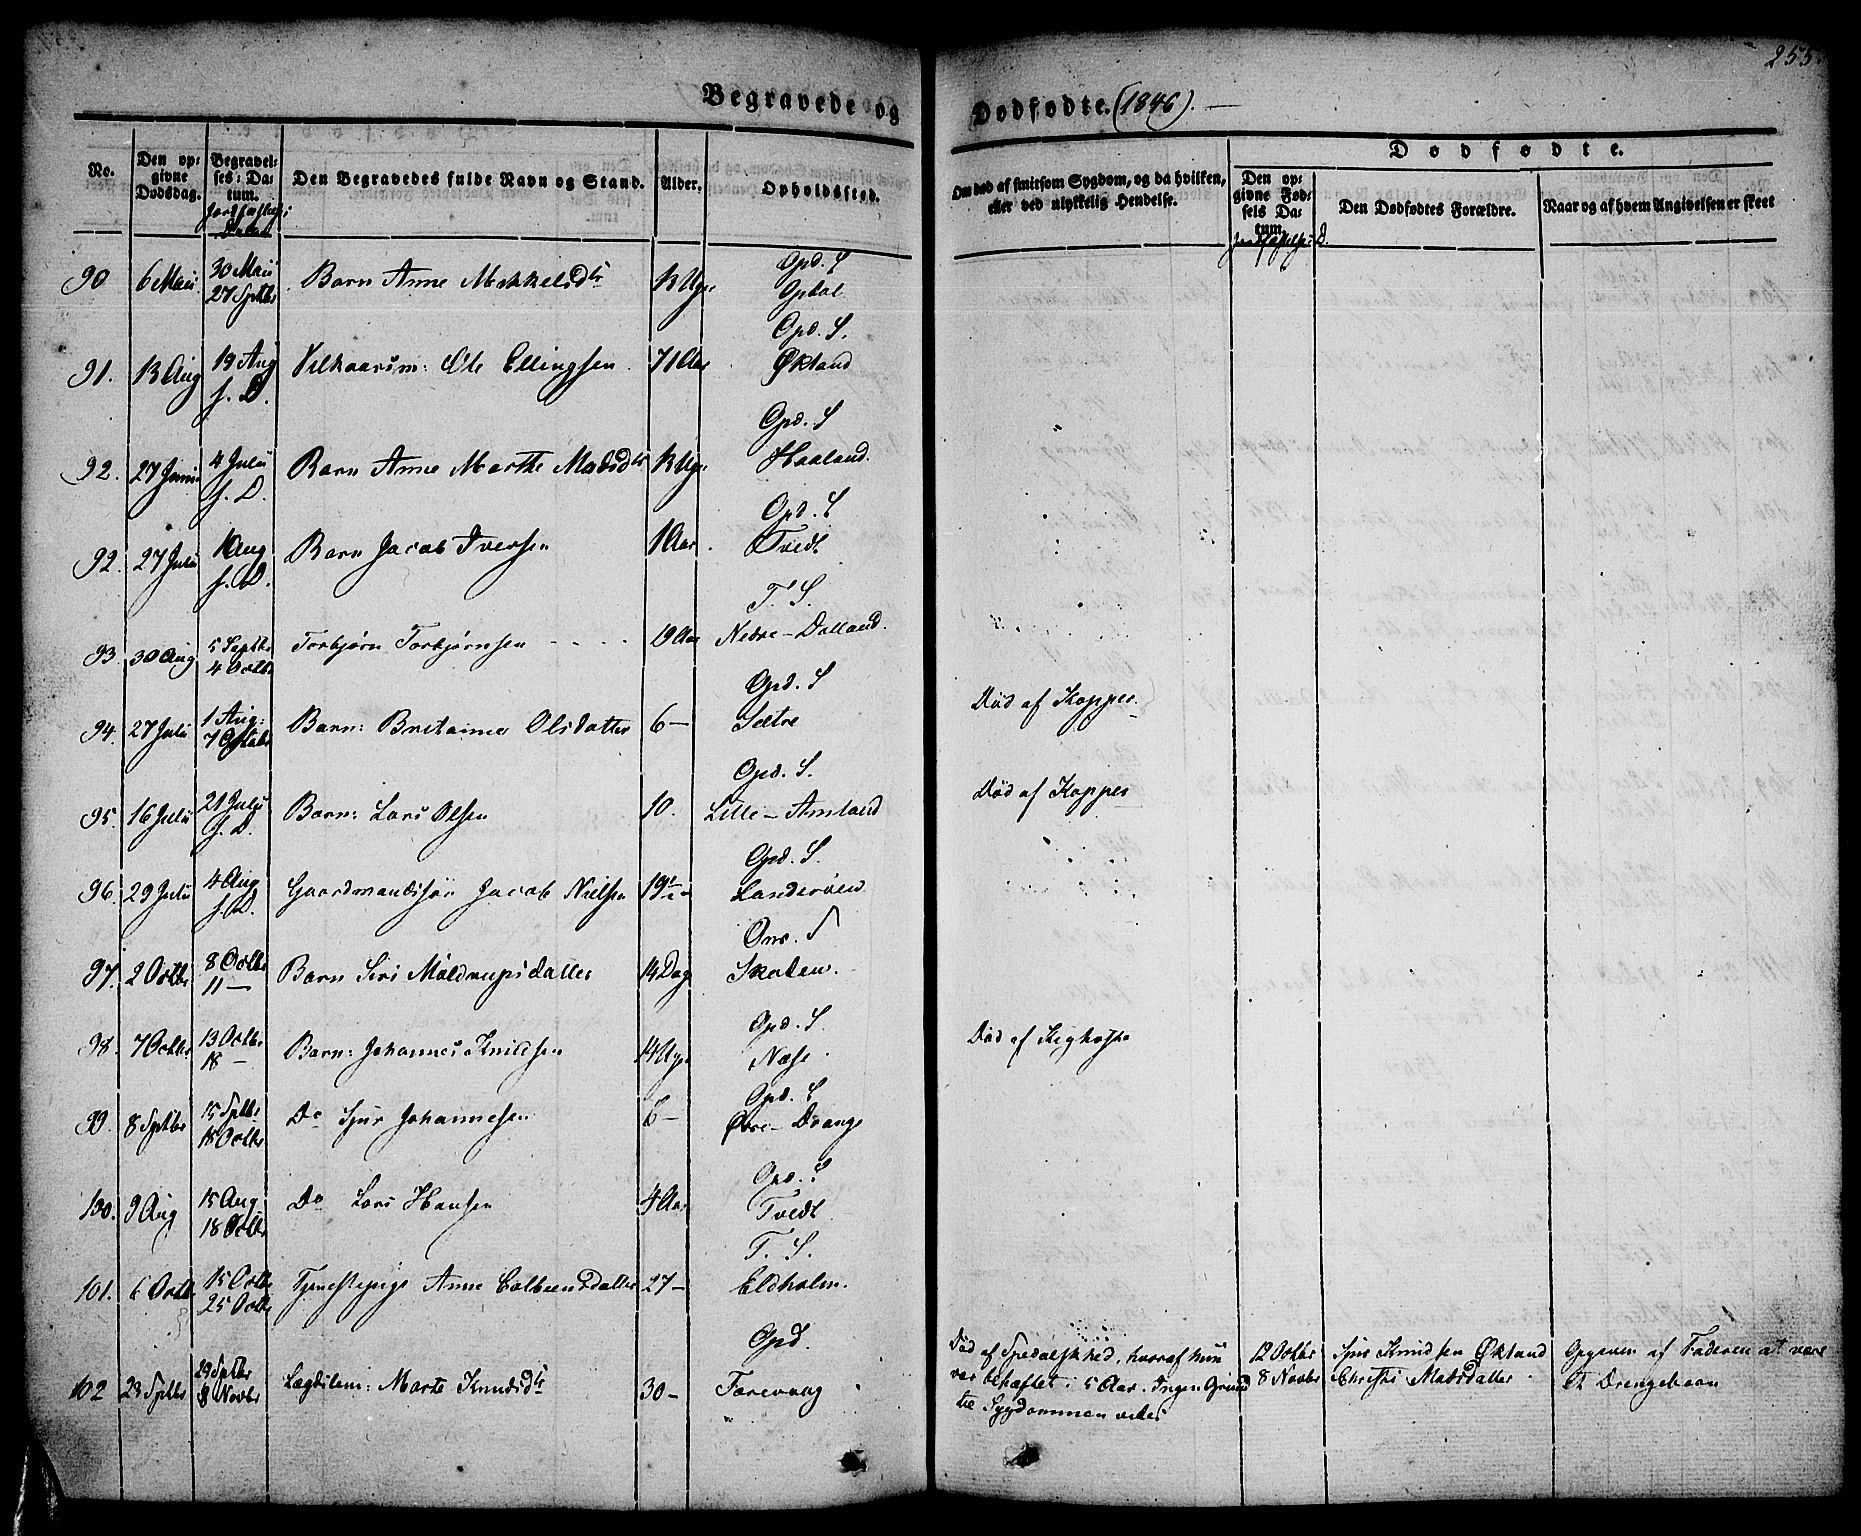 255
Begravede og Dødfødte. (1846). —
No.
Den op-
givne
Dødsdag.
Begravel-
ses-Da-
tum.
Den Begravedes fulde Navn og Stand.
Alder.
Opholdssted.
Om død af smitsom Sygdom, og da hvilken,
eller ved ulykkelig Hendelse.
Dødfødte.
Den op-
givne Fød-
sels Da-
tum.
Den Dødfødtes Forældre.
Naar og af hvem Angivelsen er skeet
90 6 Maii 30 Maii 27 Sptbr Barn Anne Mikkelsdtr 13 Uger Opd. S Opdal
91. 13 Aug 19 Aug f. D. Vilkaarsm: Ole Ellingsen 71 Aar Opd. S. Øktand
92. 27 Junii 4 Julii f. D. Barn Anne Marthe Madsdtr 13 Uger Opd. S Haaland.
92. 27 Julii 1 Aug f. D. Barn Jacob Iversen 1 Aar. Opd. S Tvedt
93. 30 Aug 5 Septbr 4 Octbr Torbjørn Torbjørnsen 19 Aar T. S. Nedre-Dalland.
94. 27 Julii 1 Aug: 7 Octobr Barn: Britanna Olsdatter 6 — Opd. S Sætre Død af Kopper.
95. 16 Julii 21 Julii f. D. Barn: Lars Olsen 10. Opd. S. Lille-Amland Død af Kopper
96. 29 Julii 4 Aug f. D. Gaardmandssøn Jacob Nielsen 19½ — Opd. S. Landsøen
97. 2 Octbr 8 Octbr 11 — Barn Siri Måldrupsdatter 14 Dage Ons. S Skaten.
98. 7 Octbr 13 Octbr 18 — Barn: Johannes Knudsen 14 Uger Opd. S. Næse. Død af Kighoste
99. 8 Sptbr 15 Sptbr 18 Octbr Do Sjur Johannesen 6 — Opd. S Øvre-Drange
100. 9 Aug 15 Aug 18 Octbr Do Lars Hansen 4 Aar Opd. S Tvedt
101. 6 Octbr 15 Octbr 25 Octbr Tjenestepige Anne Colbeensdatter 27 — T. S. Eldholm.
102 23 Sptbr 29 Sptbr 8 Novbr Lægdslem: Marte Knudsdtr 30 — Opd. Farevaag
Død af Spedalskhed, hvoraf hun
var behæftet i 5 Aar. Ingen Grund
til Sygdommen vides
12 Octbr
8 Novbr
Sjur Knudsen Øktand
Christi Madsdatter.
Opgiven af Faderen at være
et Drengebarn